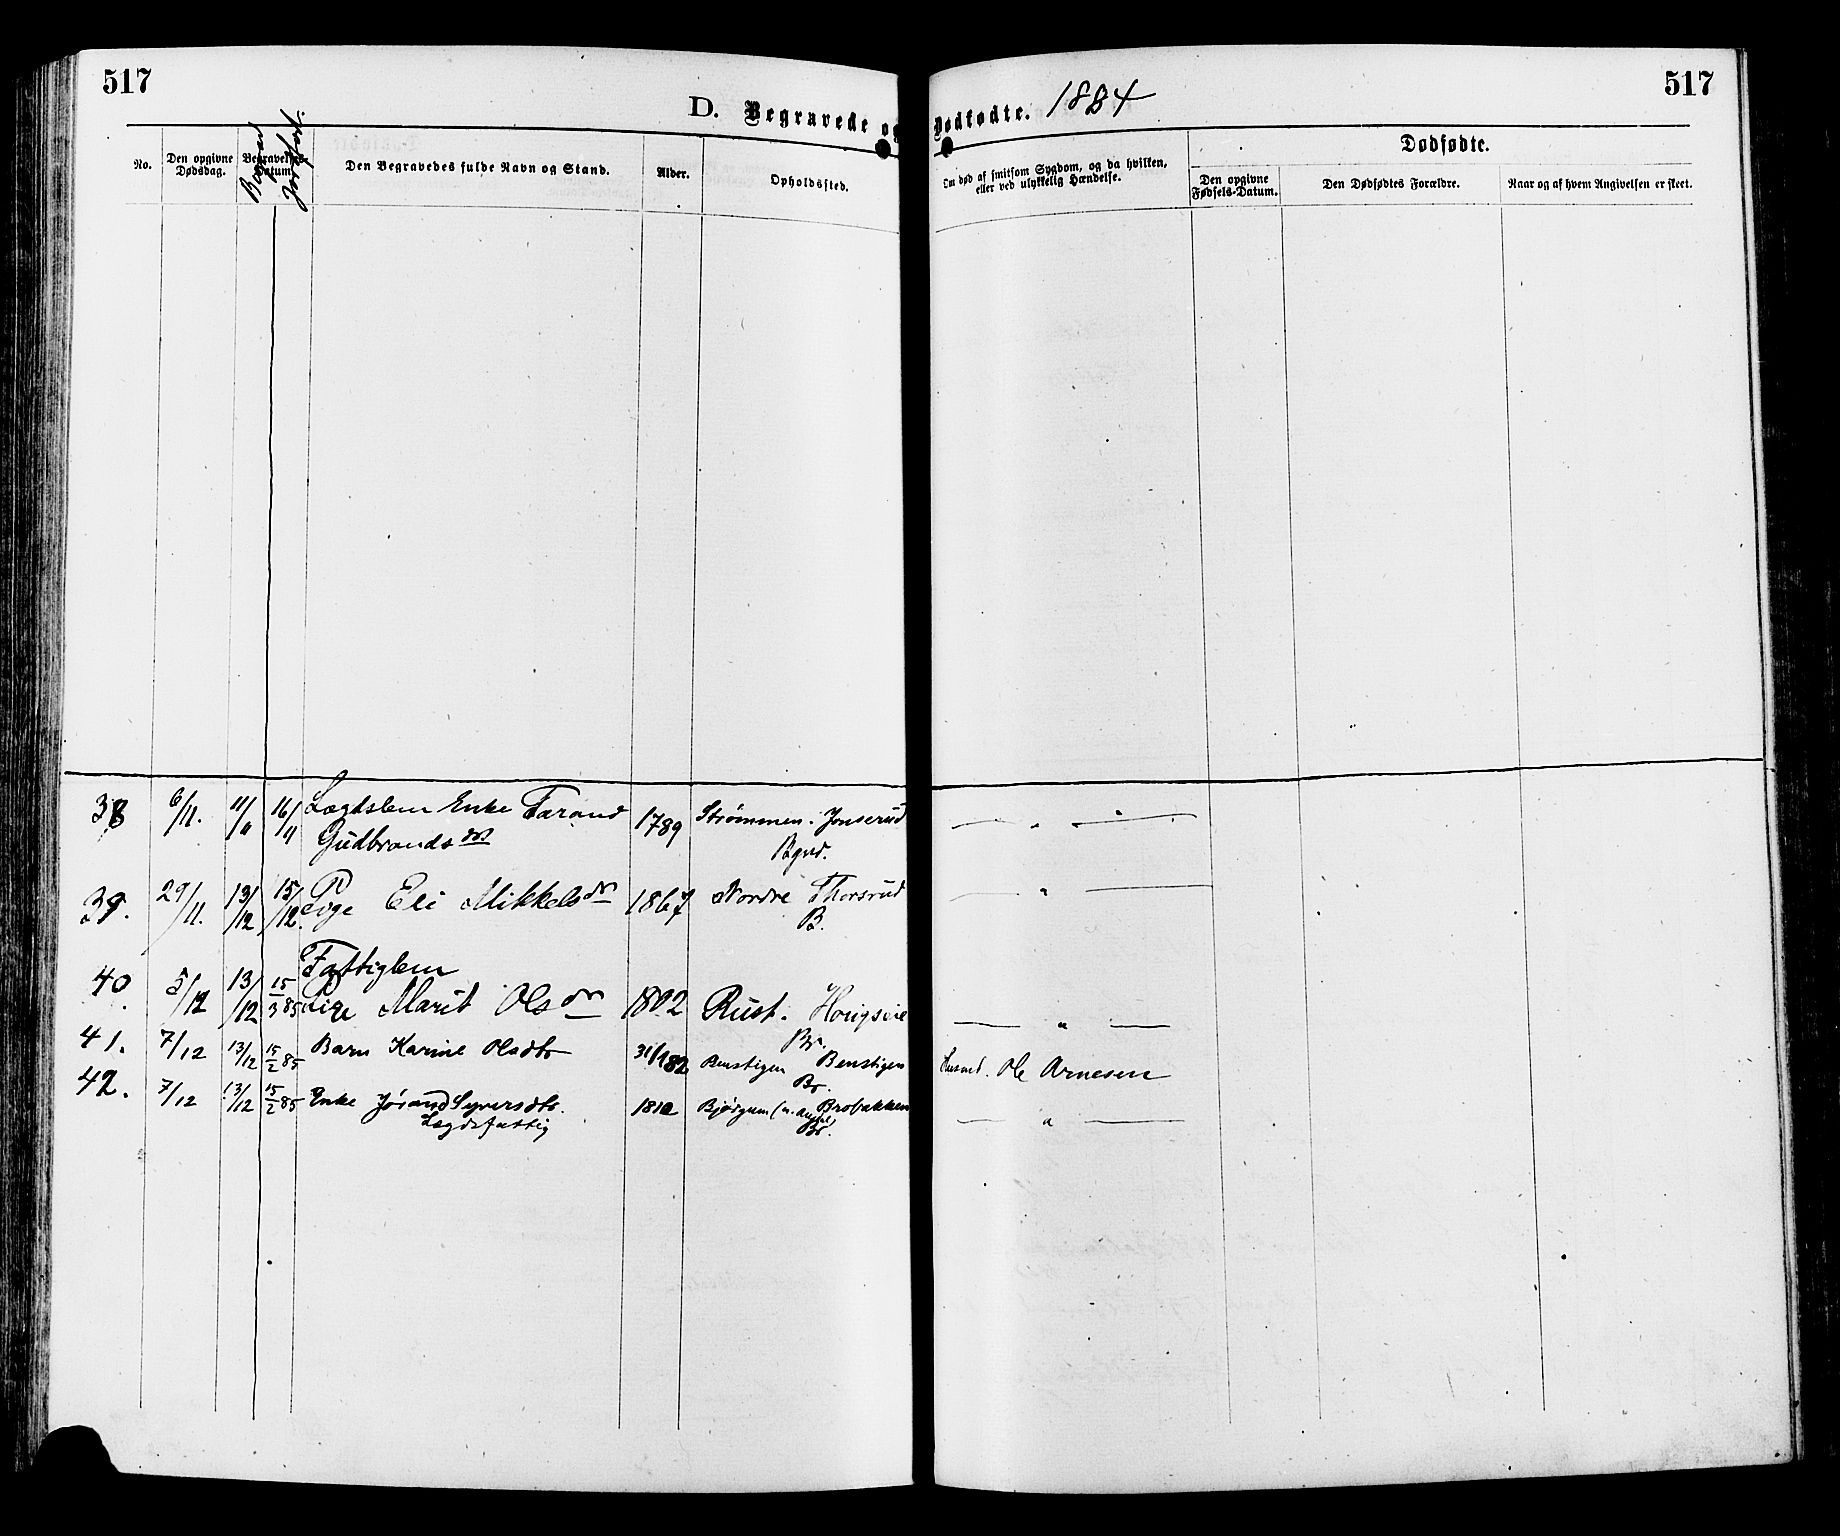 517
517
D. Begravede og Dødfødte. 1884
No.
Den opgivne Dødsdag.
Begravelses-Datum.
Begrav
Jordfæst.
Den Begravedes fulde Navn og Stand.
Alder.
Opholdssted.
Om død af smitsom Sygdom, og da hvilken,
eller ved ulykkelig Hændelse.
Dødfødte.
Den opgivne Fødsels-Datum.
Den Dødfødtes Forældre.
Naar og af hvem Angivelsen er skeet.
38 6/11. 11/11 16/11 Lægdslem Enke Farand 1789 Strømmen. Jonserud — " —
Gudbrandsdtr Bgnd.
39. 29/11. 13/12 15/12. Pige Eli Mikkelsdtr 1867 Nordre Thorsrud — " —
B.
Fattiglem
40 5/12 13/12 15/3 85 Pige Marit Olsdtr 1802 Rust. — " —
Br.
41. 7/12 13/12 15/2 85 Barn Karine Olsdtr 31/1 82 Benstigen Benstigen Husmd. Ole Arnesen
Br.
42. 7/12 13/12 15/2 85 Enke Jørand Syversdtr. 1810 Bjørgum Brobakken — " —
Lægdsfattig Br.